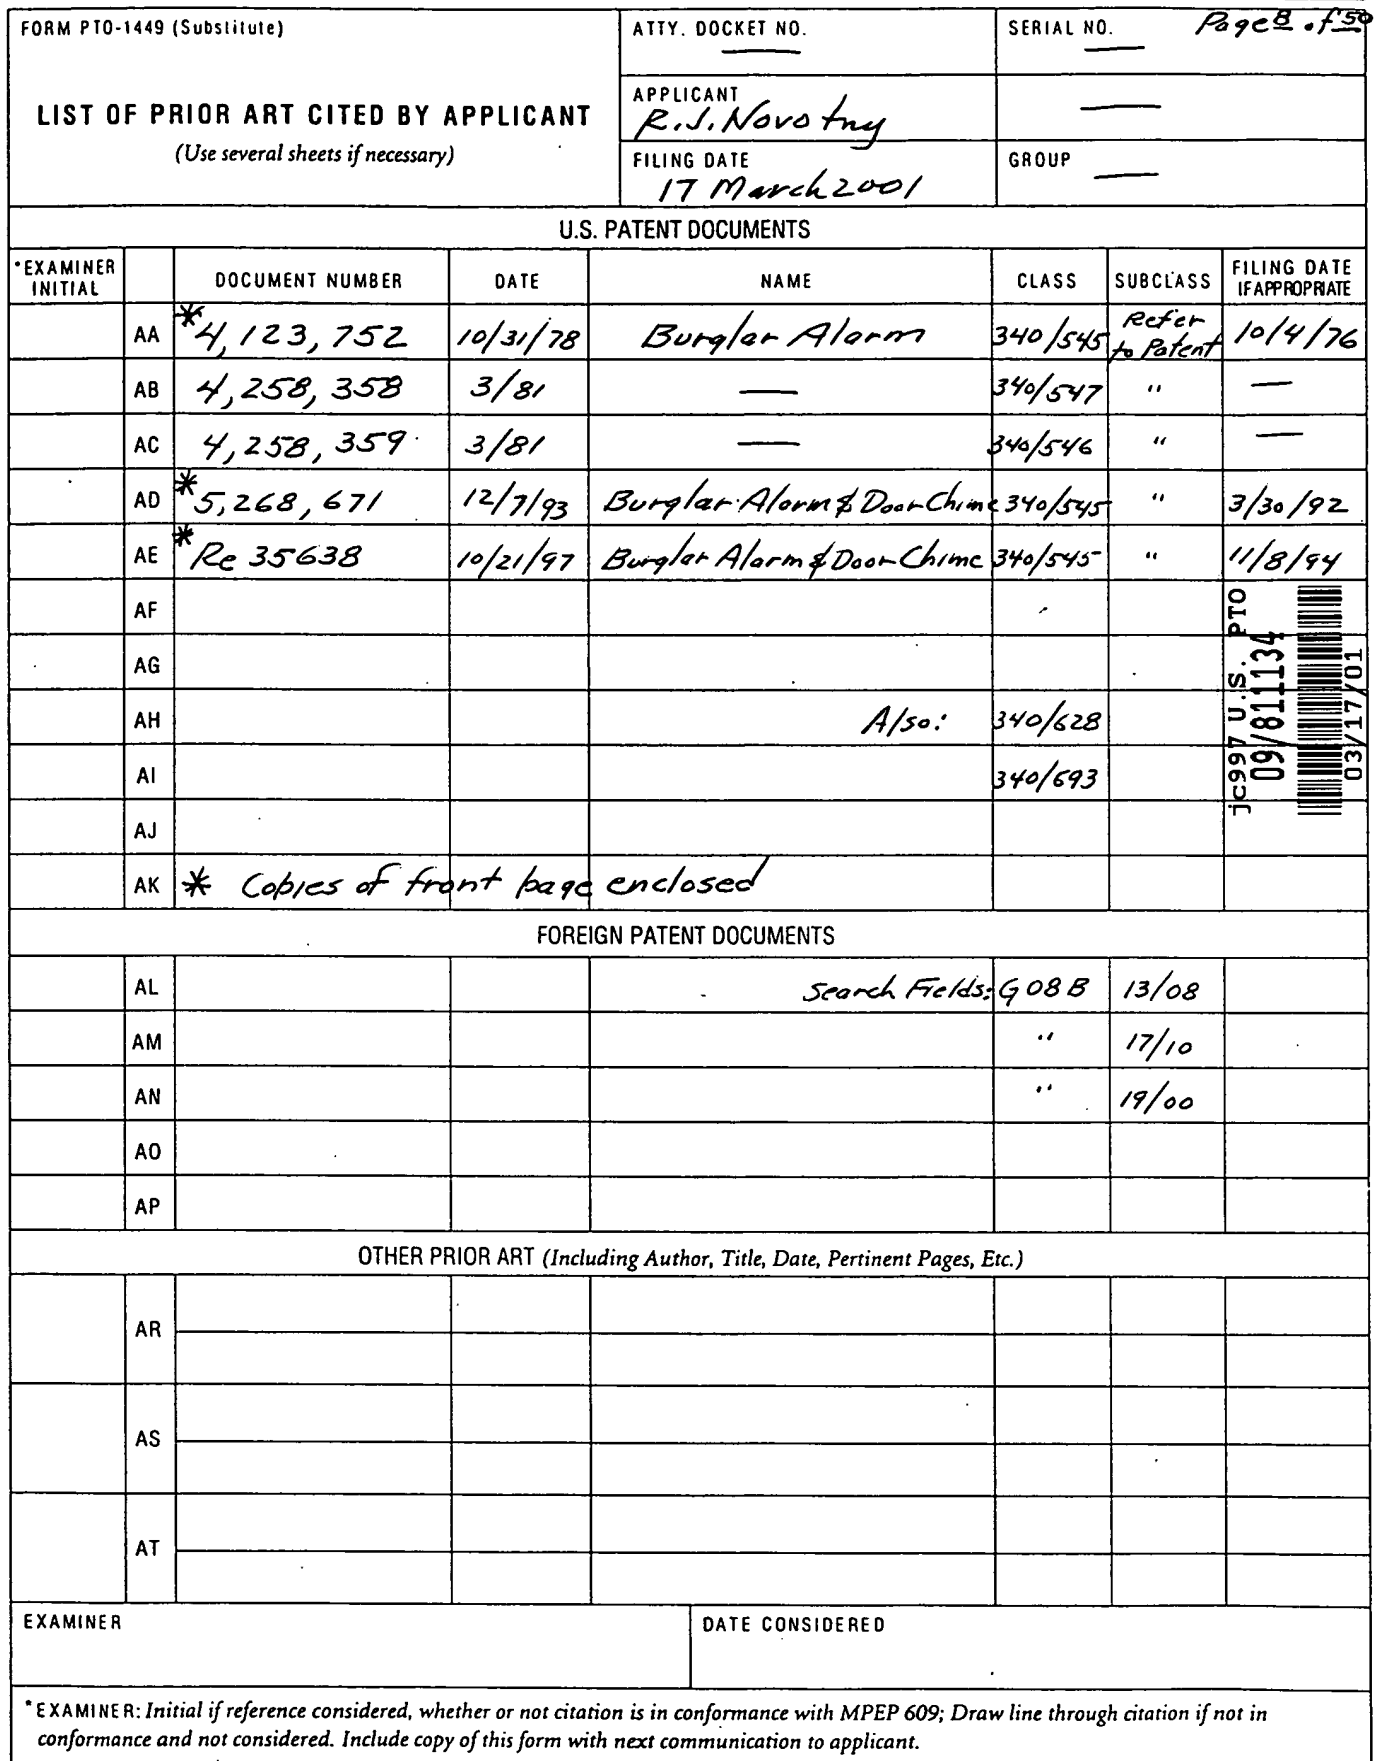 FORM PTO-1449 (Substitute)
ATTY. DOCKET NO.
SERIAL NO.
Page 8 of 50
LIST OF PRIOR ART CITED BY APPLICANT
(Use several sheets if necessary)
APPLICANT
R.J. Novotny
FILING DATE
17 March 2001
GROUP
U.S. PATENT DOCUMENTS
*EXAMINER INITIAL DOCUMENT NUMBER DATE NAME CLASS SUBCLASS FILING DATE IF APPROPRIATE
AA *4,123,752 10/31/78 Burglar Alarm 340/545 Refer to Patent 10/4/76
AB 4,258,358 3/81 — 340/547 " —
AC 4,258,359 3/81 — 340/546 " —
AD *5,268,671 12/7/93 Burglar Alarm & Door Chime 340/545 " 3/30/92
AE *Re 35638 10/21/97 Burglar Alarm & Door Chime 340/545 " 11/8/94
AF
AG
AH Also: 340/628
AI 340/693
AJ
AK * Copies of front page enclosed
jc997 U.S. PTO
09/811134
03/17/01
FOREIGN PATENT DOCUMENTS
AL Search Fields: G08B 13/08
AM " 17/10
AN " 19/00
AO
AP
OTHER PRIOR ART (Including Author, Title, Date, Pertinent Pages, Etc.)
AR
AS
AT
EXAMINER
DATE CONSIDERED
*EXAMINER: Initial if reference considered, whether or not citation is in conformance with MPEP 609; Draw line through citation if not in
conformance and not considered. Include copy of this form with next communication to applicant.